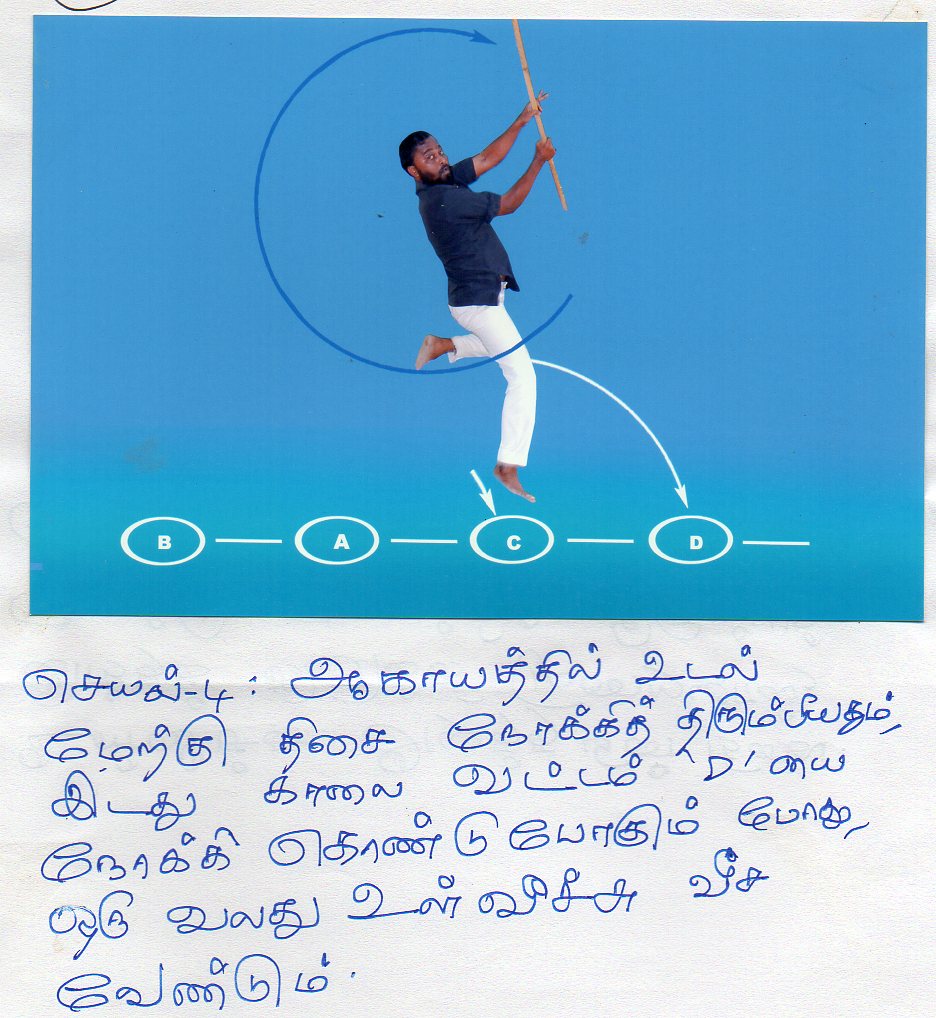 B A C D
செயல்-4: ஆகாயத்தில் உடல்
மேற்கு திசை நோக்கித் திரும்பியதும்,
இடது காலை வட்டம் 'D' யை
நோக்கி கொண்டு போகும் போது,
ஒரு வலது உள் வீச்சு வீச
வேண்டும்.